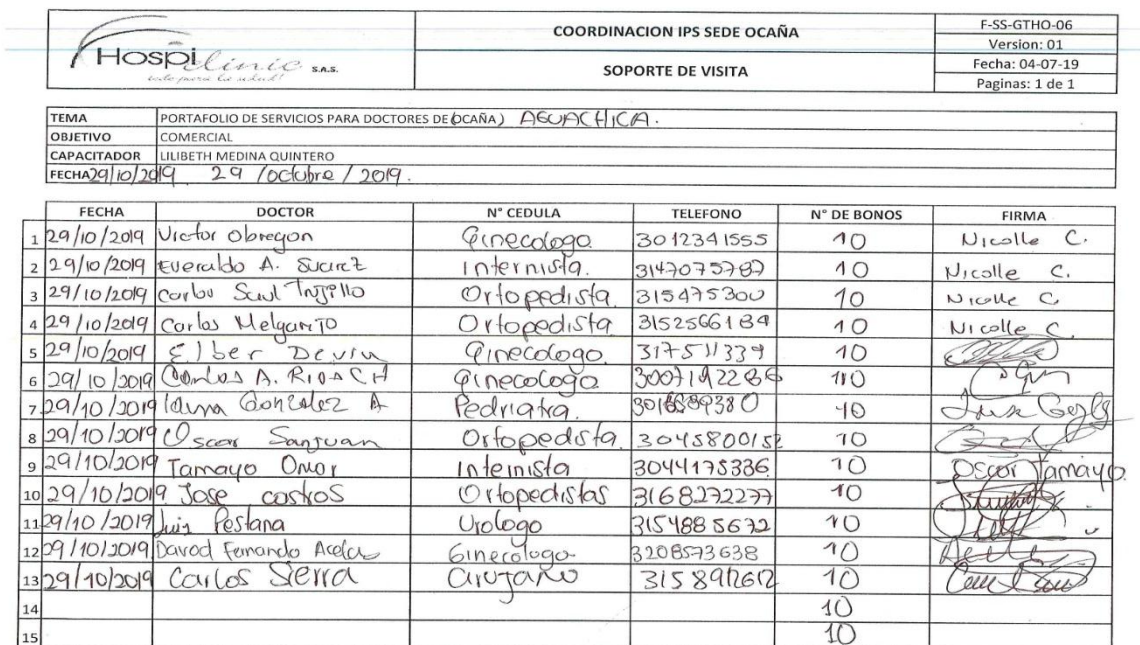 Hospiclinic S.A.S.
todo para la salud!
COORDINACION IPS SEDE OCAÑA
SOPORTE DE VISITA
F-SS-GTHO-06
Version: 01
Fecha: 04-07-19
Paginas: 1 de 1
TEMA PORTAFOLIO DE SERVICIOS PARA DOCTORES DE (OCAÑA) AGUACHICA.
OBJETIVO COMERCIAL
CAPACITADOR LILIBETH MEDINA QUINTERO
FECHA 29/10/2019 29 /octubre / 2019.
FECHA DOCTOR N° CEDULA TELEFONO N° DE BONOS FIRMA
1 29/10/2019 Victor Obregon Ginecologo 3012341555 10 Nicolle C.
2 29/10/2019 Everaldo A. Suarez Internista. 3147075787 10 Nicolle C.
3 29/10/2019 Saul Trujillo Ortopedista. 315475300 10 Nicolle C
4 29/10/2019 Carlos Melgarejo Ortopedista 3152566184 10 Nicolle C.
5 29/10/2019 Elber Ginecologo 317511339 10
6 29/10/2019 Carlos A. Ginecologo 10
7 29/10/2019 Gonzalez A Pedriatra. 10
8 29/10/2019 Oscar Sanjuan Ortopedista 3045800152 10
9 29/10/2019 Tamayo Omar Internista 3044175336 10 Oscar Tamayo.
10 29/10/2019 Jose castros Ortopedistas 3168272277 10
11 29/10/2019 Luis Pestana Urologo 3154885672 10
12 29/10/2019 David Fernando Ginecologo 3208573638 10
13 29/10/2019 Carlos Sierra cirujano 3158912612 10
14 10
15 10